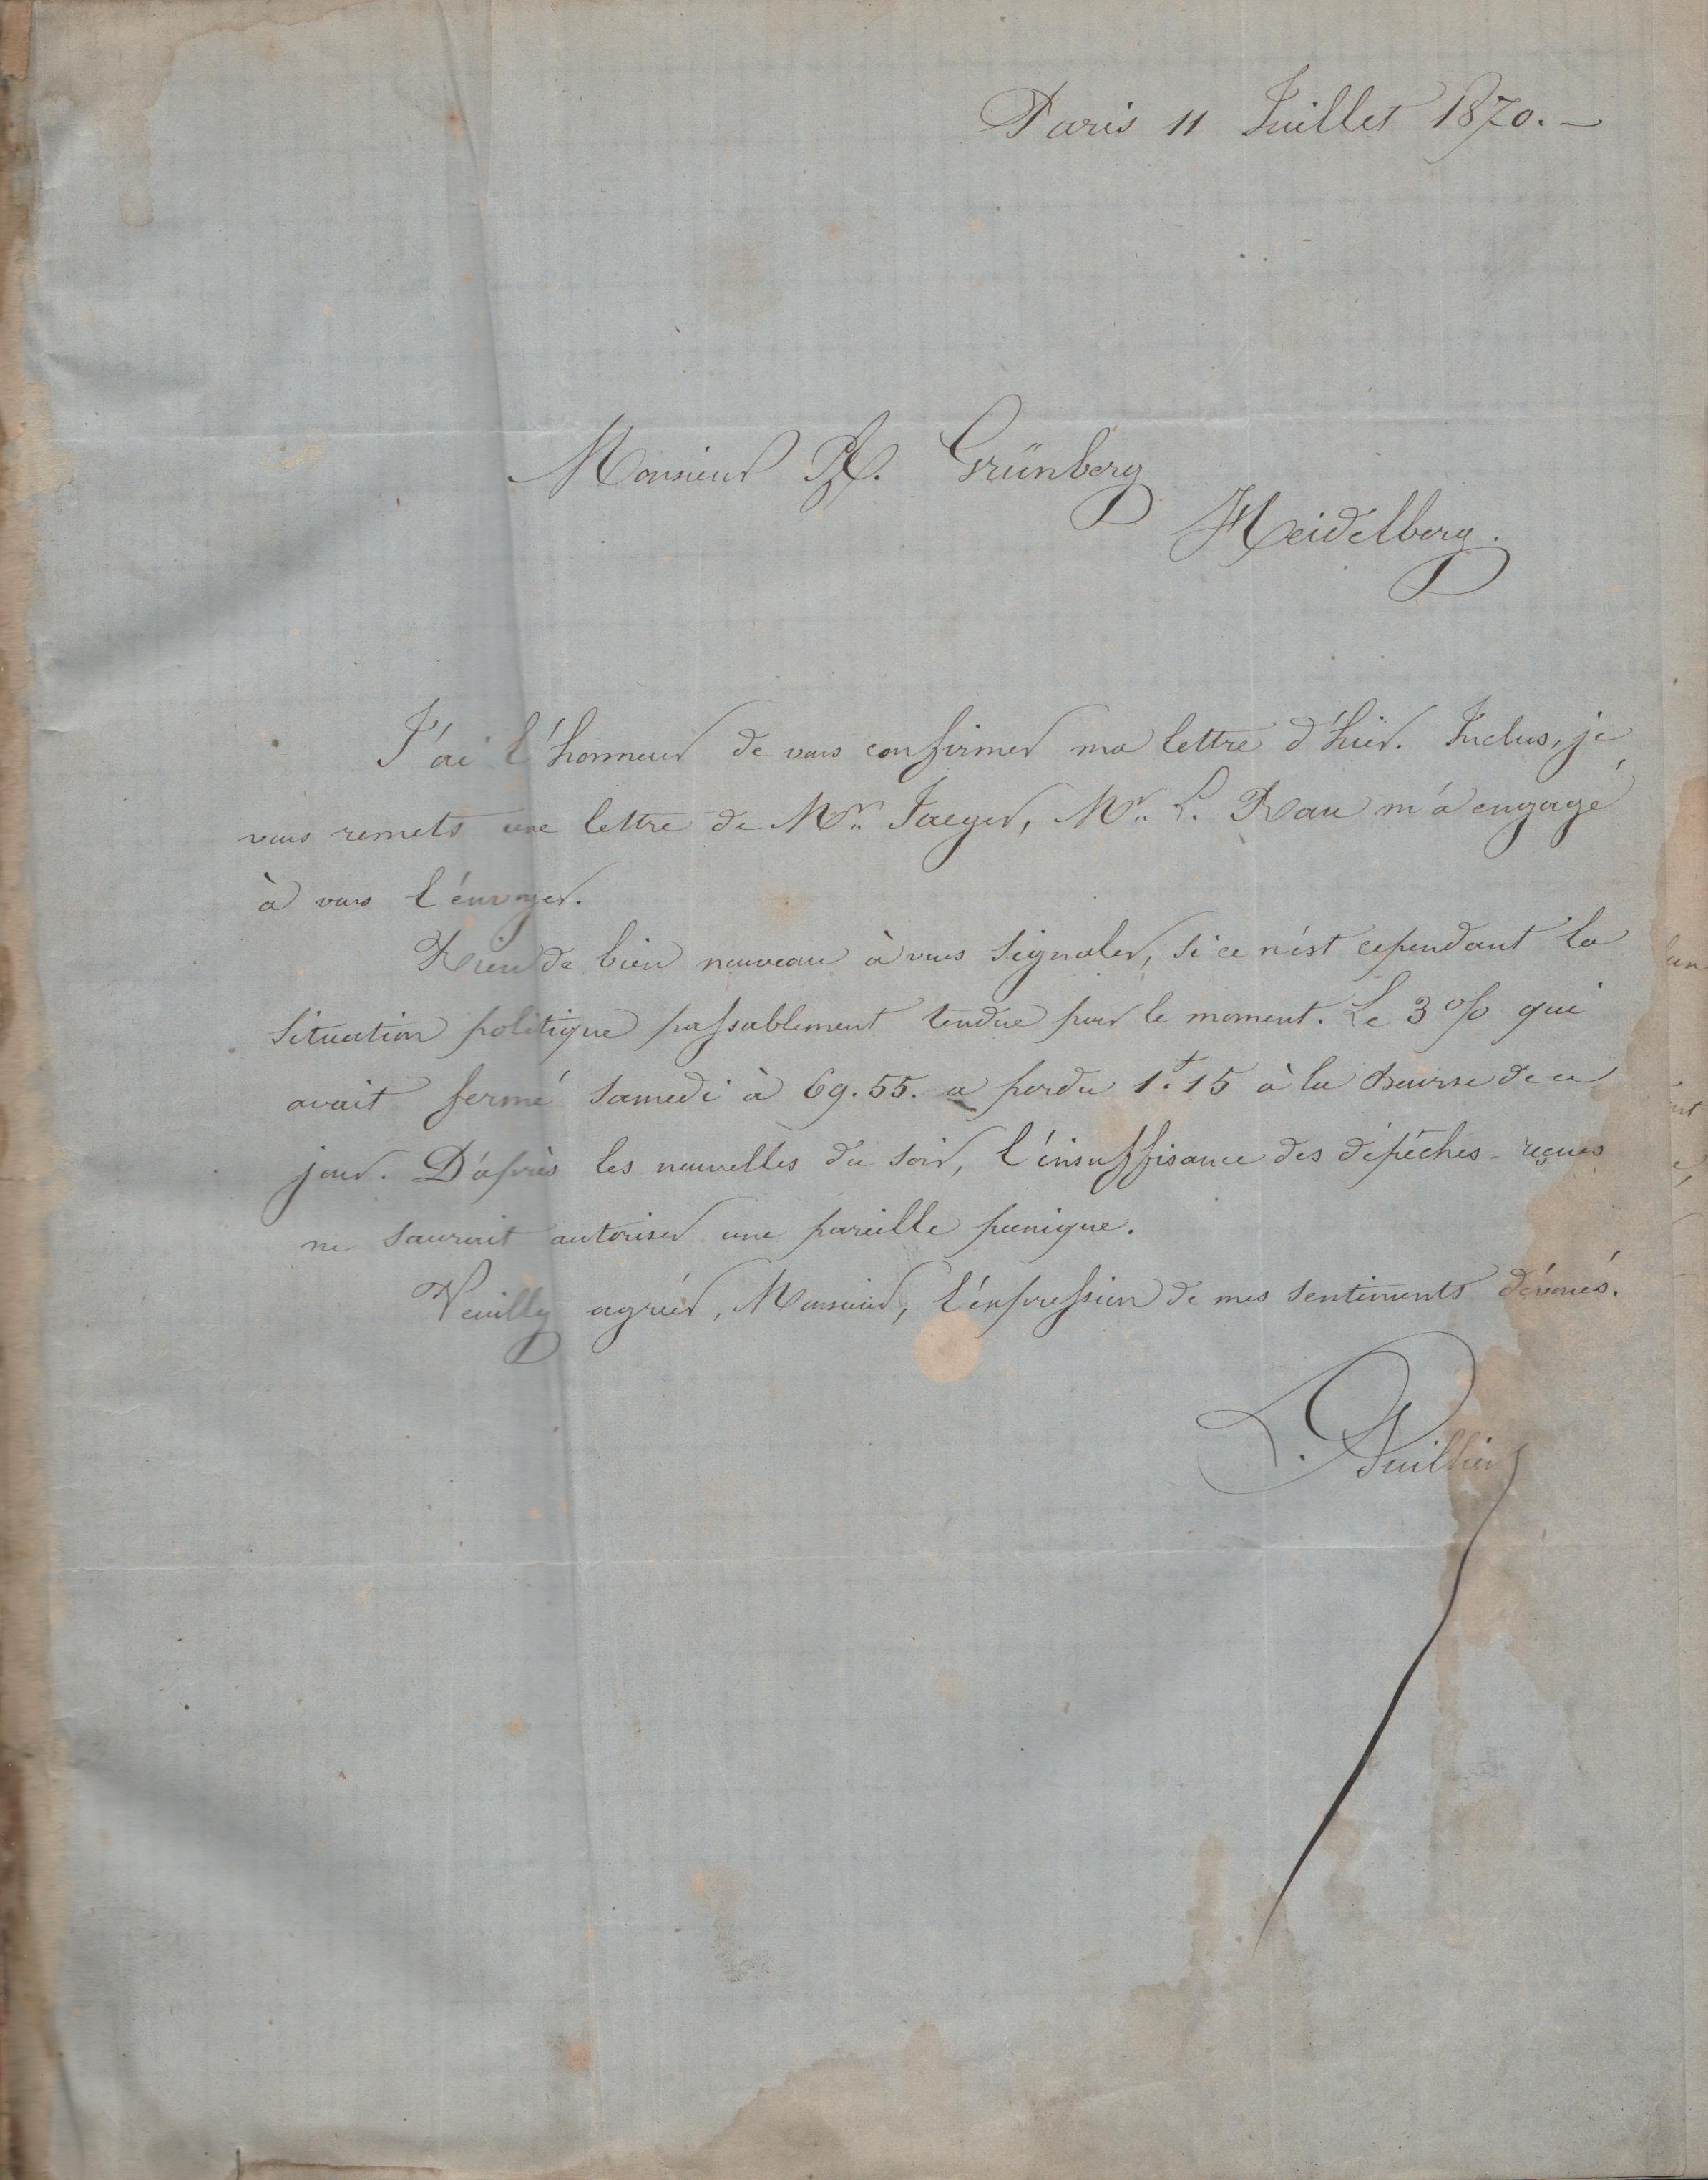 Paris 11 Juillet 1870. —
Monsieur H. Grünberg
Heidelberg.
J'ai l'honneur de vous confirmer ma lettre d'hier. Inclus, je
vous remets une lettre de Mr. Jaeger, Mr. L. Rau m'a engagé
à vous l'envoyer.
Rien de bien nouveau à vous signaler, si ce n'est cependant la
situation politique passablement tendue pour le moment. Le 3% qui
avait fermé samedi à 69.55. a perdu 1f.15 à la Bourse de ce
jour. D'après les nouvelles du soir, l'insuffisance des dépêches reçues
ne saurait autoriser une pareille panique.
Veuillez agréer, Monsieur, l'expression de mes sentiments dévoués.
L.